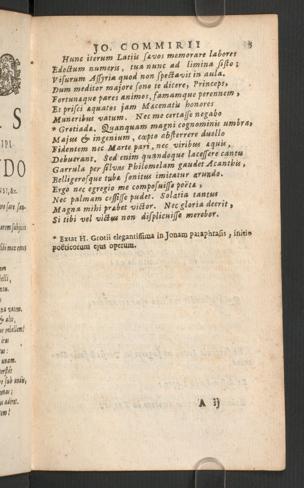 JO. COMMIRII 3
Hunc iterum Latiis sævos memorare labores
Edoctum numeris, tua nunc ad limina sisto;
Visurum Assyria quod non spectavit in aula.
Dum meditor majore sono te dicere, Princeps,
Fortunaque pares animos, famamque perennem,
Et prisci aquatos jam Mecænatis honores
Muneribus vatum. Nec me certasse negabo
* Grotiada. Quanquam magni cognominis umbra,
Majus & ingenium, cœpto absterrere duello
Fidentem nec Marte pari, nec viribus æquis,
Debuerant. Sed enim quandoque lacessere cantu
Garrula per silvas Philomelam gaudet Acanthis,
Belligerosque tubæ sonitus imitatur arundo.
Ergo nec egregio me composuisse poëta,
Nec palmam cessisse pudet. Solatia tantus
Magna mihi præbet victor. Nec gloria deerit,
Si tibi vel victus non displicuisse merebor.
* Extat H. Grotii elegantissima in Jonam paraphrasis, initio
poëticorum ejus operum.
A ij
S
IPI.
DO